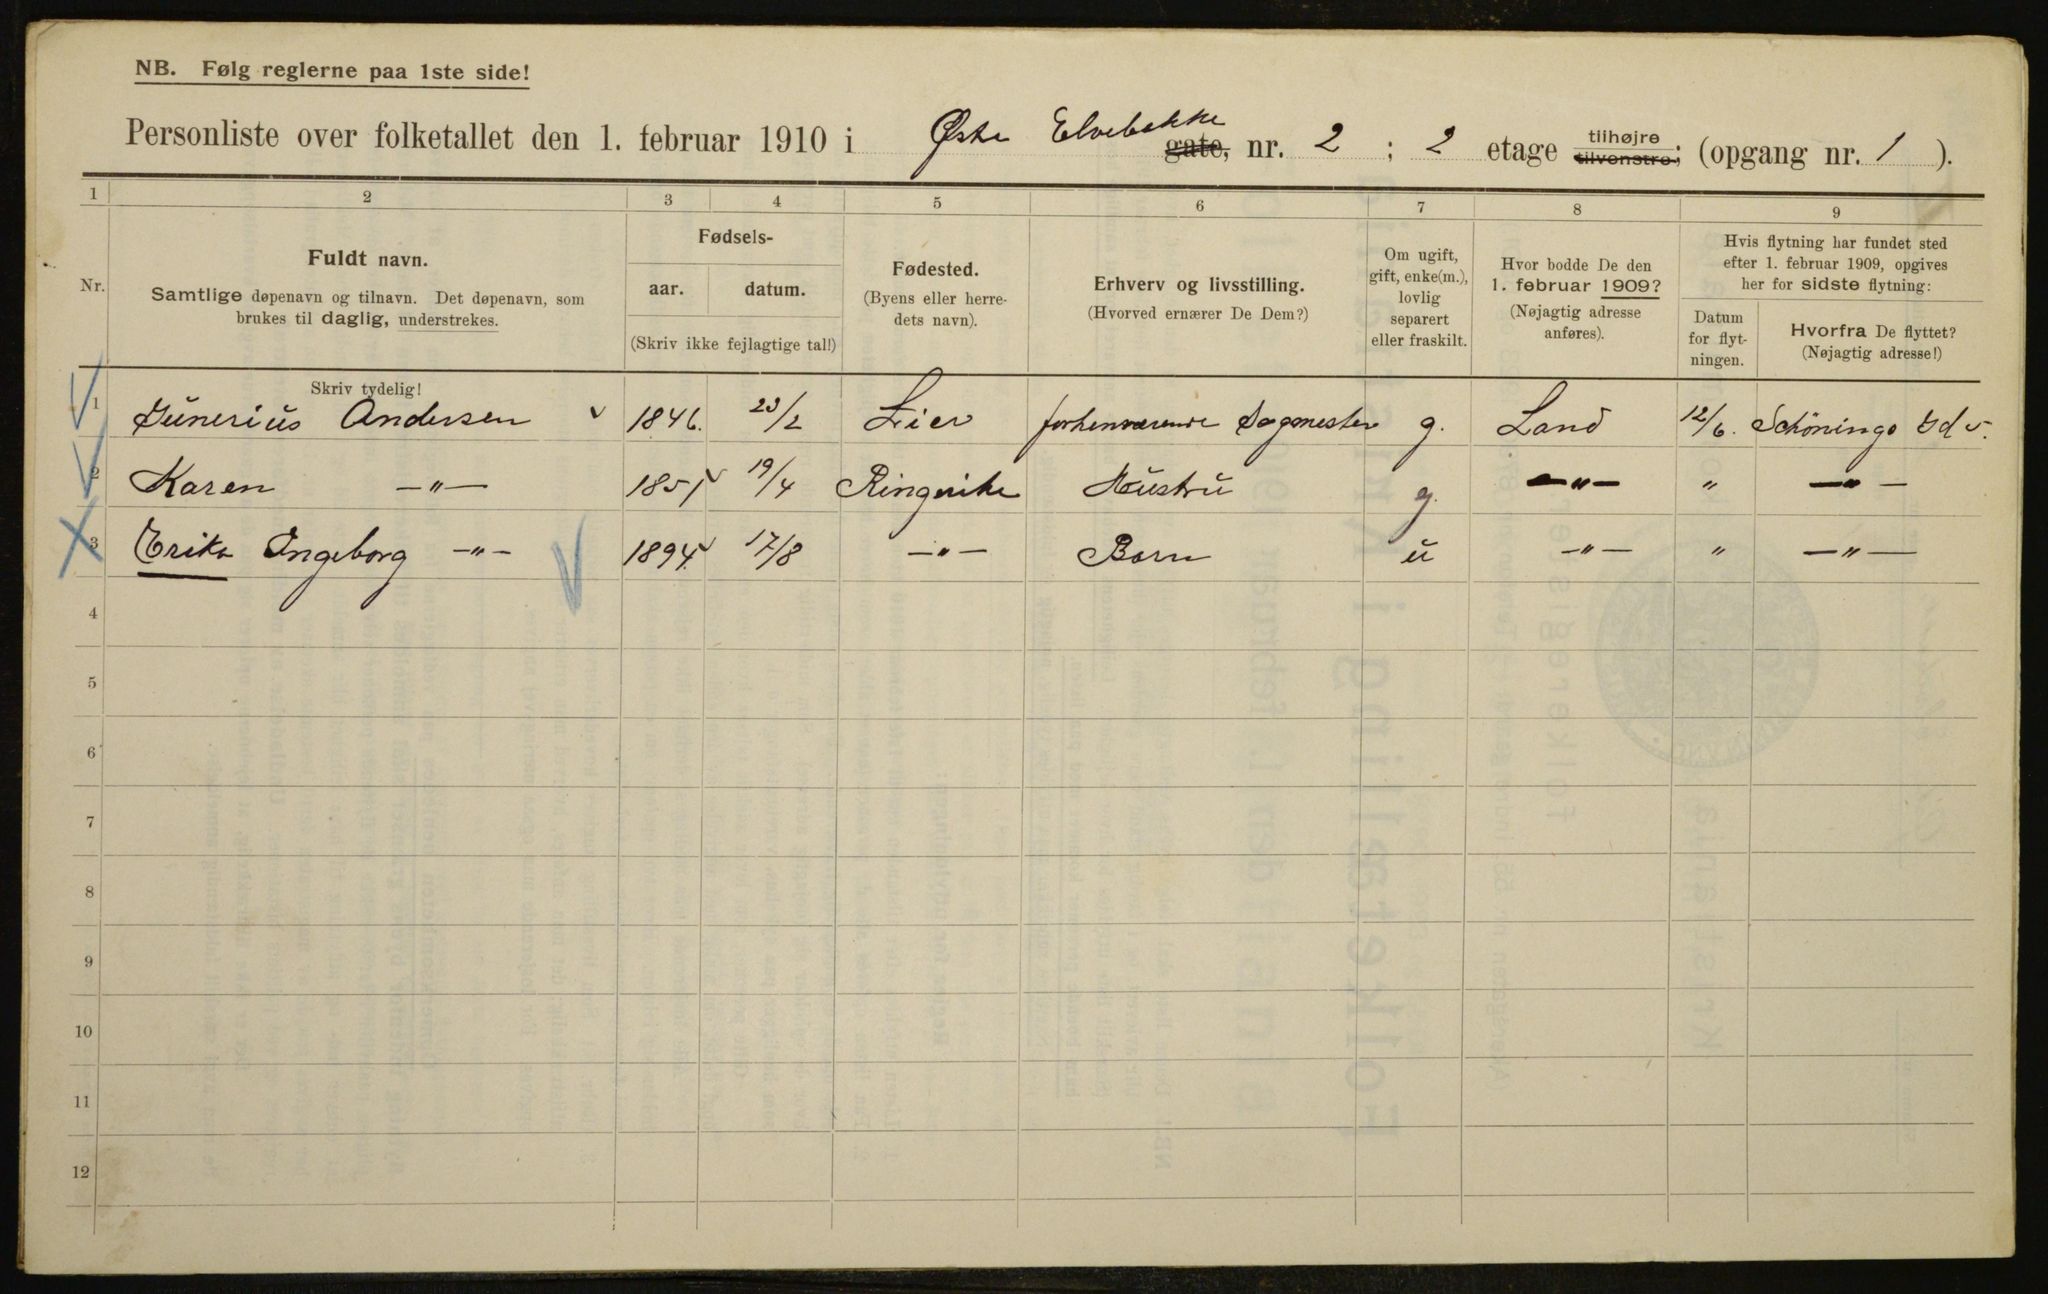 NB. Følg reglerne paa 1ste side!
Personliste over folketallet den 1. februar 1910 i Østre Elvebakke gate, nr. 2 ; 2 etage tilhøjre tilvenstre; (opgang nr. 1 ).
1 2 3 4 5 6 7 8 9
Nr.
Fuldt navn.
Samtlige døpenavn og tilnavn. Det døpenavn, som
brukes til daglig, understrekes.
Skriv tydelig!
Fødsels-
aar. datum.
(Skriv ikke fejlagtige tal!)
Fødested.
(Byens eller herre-
dets navn).
Erhverv og livsstilling.
(Hvorved ernærer De Dem?)
Om ugift,
gift, enke(m.),
lovlig
separert
eller fraskilt.
Hvor bodde De den
1. februar 1909?
(Nøjagtig adresse
anføres).
Hvis flytning har fundet sted
efter 1. februar 1909, opgives
her for sidste flytning:
Datum
for flyt-
ningen.
Hvorfra De flyttet?
(Nøjagtig adresse!)
1 Junerius Andersen 1846. 23/2 Lier forhenværende Sagmester g. Land 12/6. Schönings Gd
2 Karen —"— 1851 19/4 Ringerike Hustru g. —"— " —"—
3 Erika Ingeborg —"— 1894 17/8 —"— Barn u —"— " —"—
4
5
6
7
8
9
10
11
12